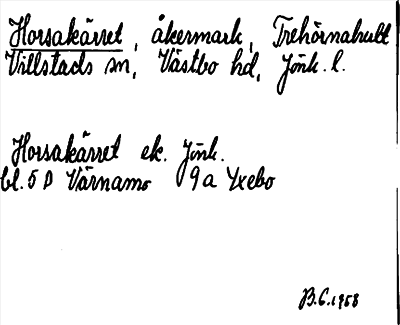 Horsakärret, åkermark, Trehörnahult
Villstads sn, Västbo hd, Jönk. l.
Horsakärret ek. Jönk.
bl. 5 D Värnamo 9 a Yxebo
B.C. 1958